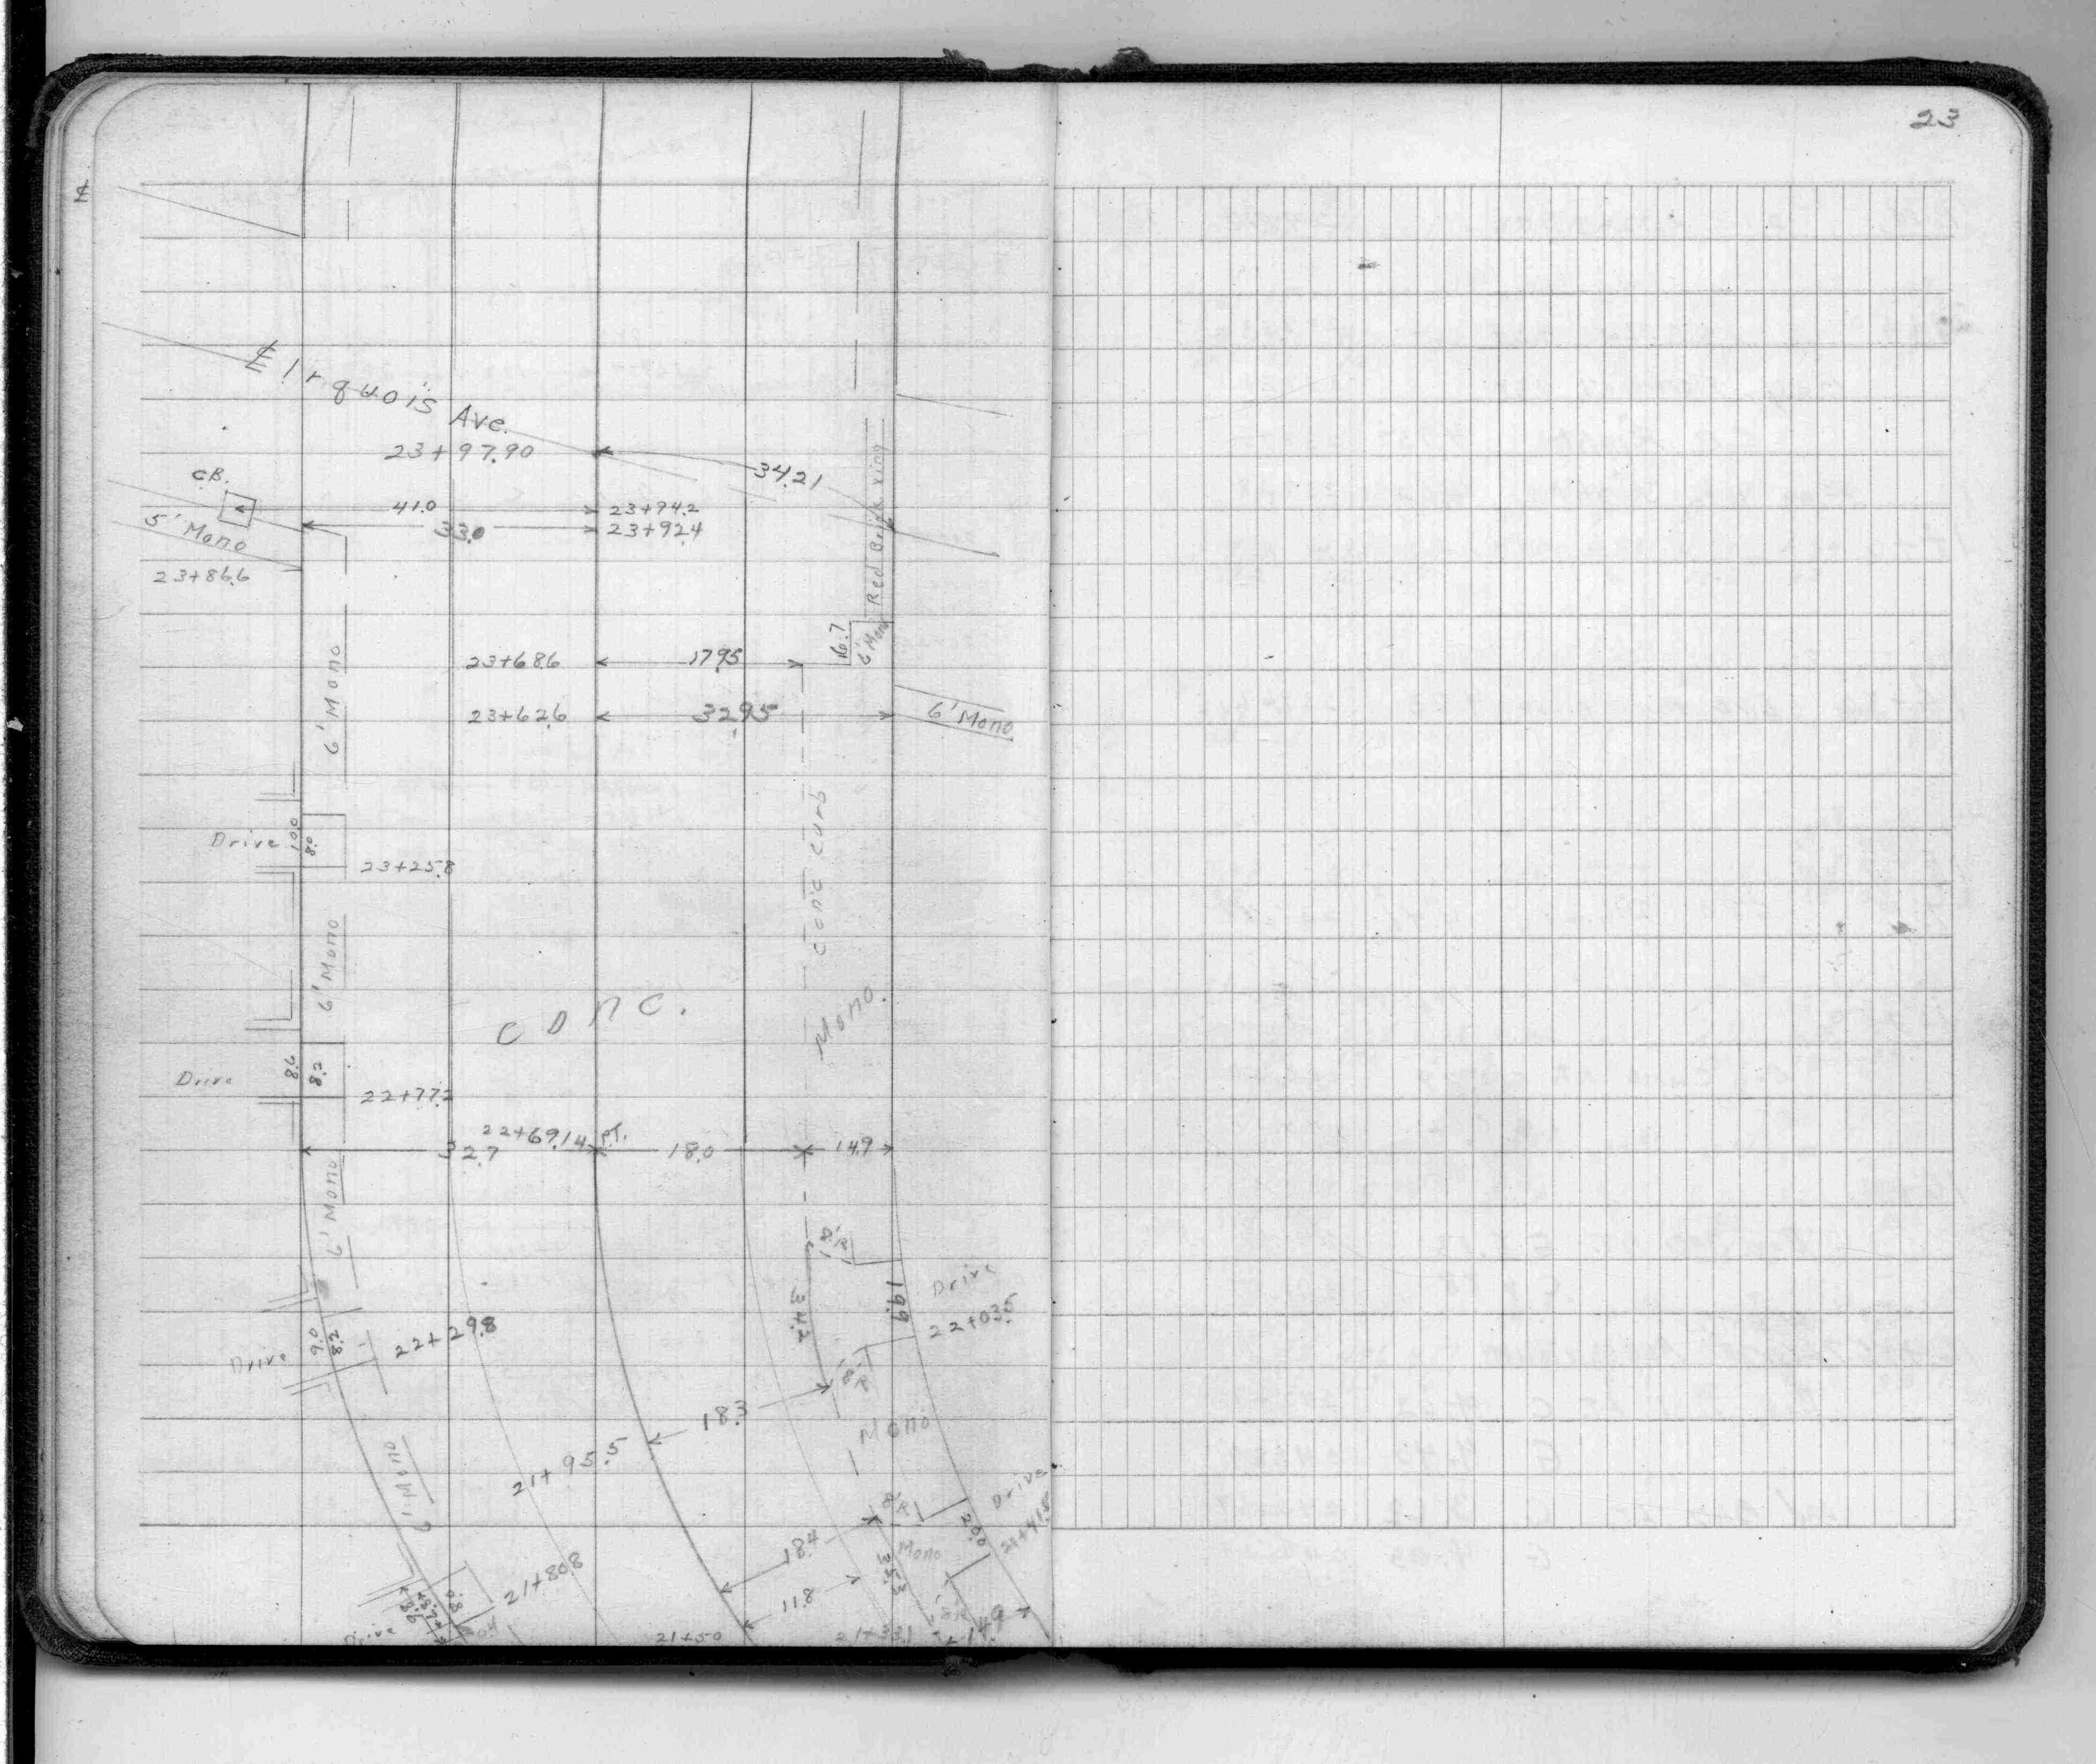 23
℄ Irquois Ave.
23+97.90
34.21
C.B.
41.0
23+94.2
33.0
23+92.4
5' Mono
23+86.6
Red Brick
6' Mono
23+68.6
17.95
23+62.6
32.95
6' Mono
6' Mono
Drive
10.0
8.0
23+25.8
Conc Curb
6' Mono
Conc.
Mono.
Drive
8.6
8.2
22+77.2
22+69.14 P.T.
32.7
18.0
14.9
6' Mono
18'R
Drive
34.2
19.9
22+03.5
22+29.8
Drive
9.0
8.2
8'R
18.3
Mono
21+95.5
6' Mono
Drive
8'R
20.0
21+41.5
18.4
Mono
33.3
11.8
21+80.8
8.0
8'R
14.9
Drive
21+50